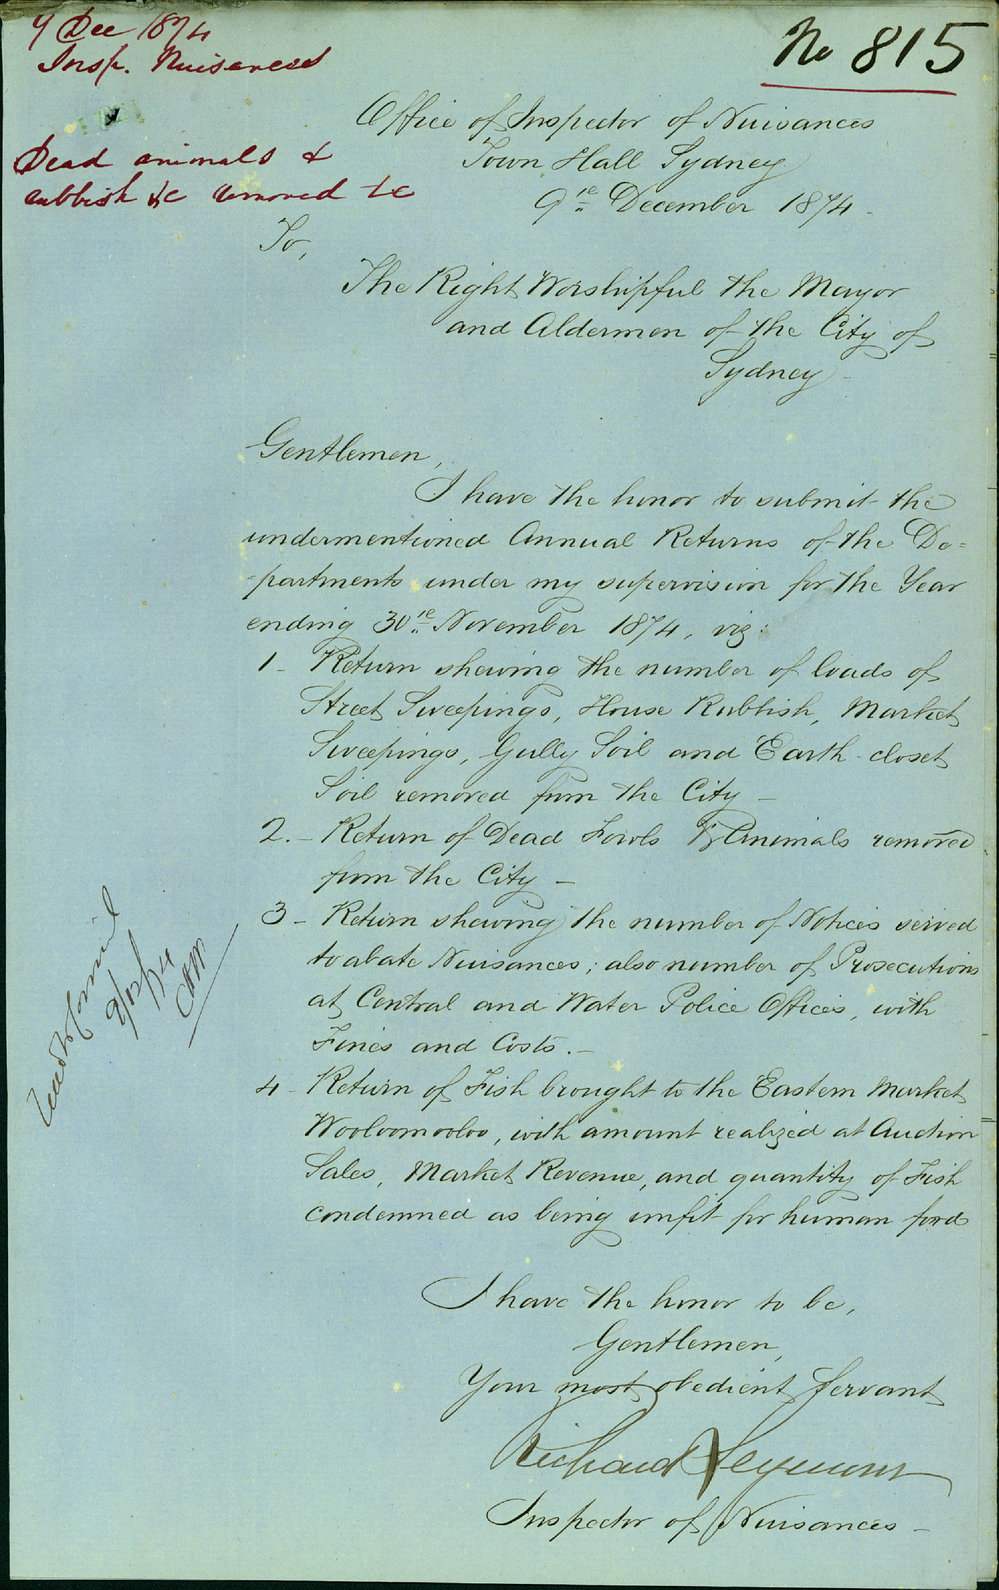 9 Dec 1874
Insp. Nuisances
No 815
Dead animals &
rubbish &c removed &c
Office of Inspector of Nuisances
Town Hall Sydney
9th December 1874.
To,
The Right Worshipful the Mayor
and Aldermen of the City of
Sydney
Gentlemen,
I have the honor to submit the
undermentioned Annual Returns of the De=
-partments under my supervision for the Year
ending 30th November 1874, viz:
1- Return shewing the number of loads of
Street Sweepings, House Rubbish, Market
Sweepings, Gully Soil and Earth-closet
Soil removed from the City -
2.- Return of Dead Fowls & Animals removed
from the City -
3- Return shewing the number of Notices served
to abate Nuisances; also number of Prosecutions
at Central and Water Police Offices, with
Fines and Costs.-
4- Return of Fish brought to the Eastern Market
Wooloomooloo, with amount realized at Auction
Sales, Market Revenue, and quantity of Fish
condemned as being unfit for human food
I have the honor to be,
Gentlemen,
Your most obedient Servant
Richard Seymour
Inspector of Nuisances -
9/12/74